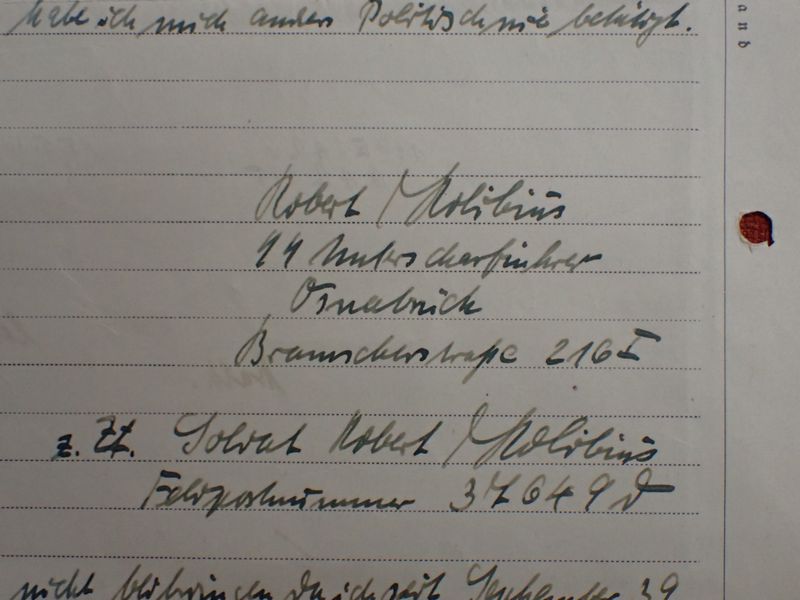 habe ich mich anders Politisch nie betätigt.
Robert Kolibius
SS Unterscharführer
Osnabrück
Bramscherstraße 216 I
z. Zt. Soldat Robert Kolibius
Feldpostnummer 37649 D
nicht beibringen da ich seit September 39
and